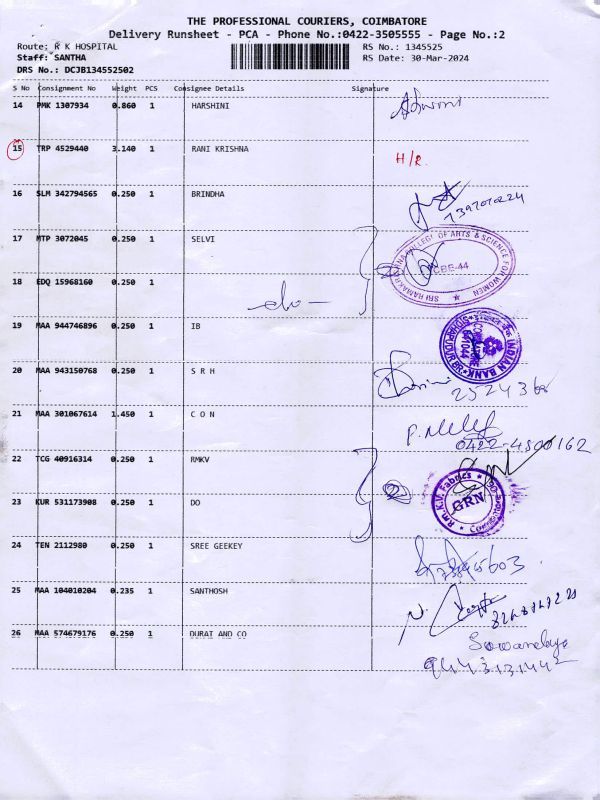 THE PROFESSIONAL COURIERS, COIMBATORE
Delivery Runsheet - PCA - Phone No.:0422-3505555 - Page No.:2
Route: R K HOSPITAL RS No.: 1345525
Staff: SANTHA RS Date: 30-Mar-2024
DRS No.: DCJB134552502
S No Consignment No Weight PCS Consignee Details Signature
14 PMK 1307934 0.860 1 HARSHINI
15 TRP 4529440 3.140 1 RANI KRISHNA H/R.
16 SLM 342794565 0.250 1 BRINDHA
17 MTP 3072045 0.250 1 SELVI
SRI RAMAKRISHNA COLLEGE OF ARTS & SCIENCE FOR WOMEN
CBE-44
18 EDQ 15968160 0.250 1
19 MAA 944746896 0.250 1 IB
INDIAN BANK
20 MAA 943150768 0.250 1 S R H
21 MAA 301067614 1.450 1 C O N
0422-4500162
22 TCG 40916314 0.250 1 RMKV
23 KUR 531173908 0.250 1 DO
R.m. K.V. Fabrics
GRN
24 TEN 2112980 0.250 1 SREE GEEKEY
25 MAA 104010204 0.235 1 SANTHOSH
26 MAA 574679176 0.250 1 DURAI AND CO
9443131442